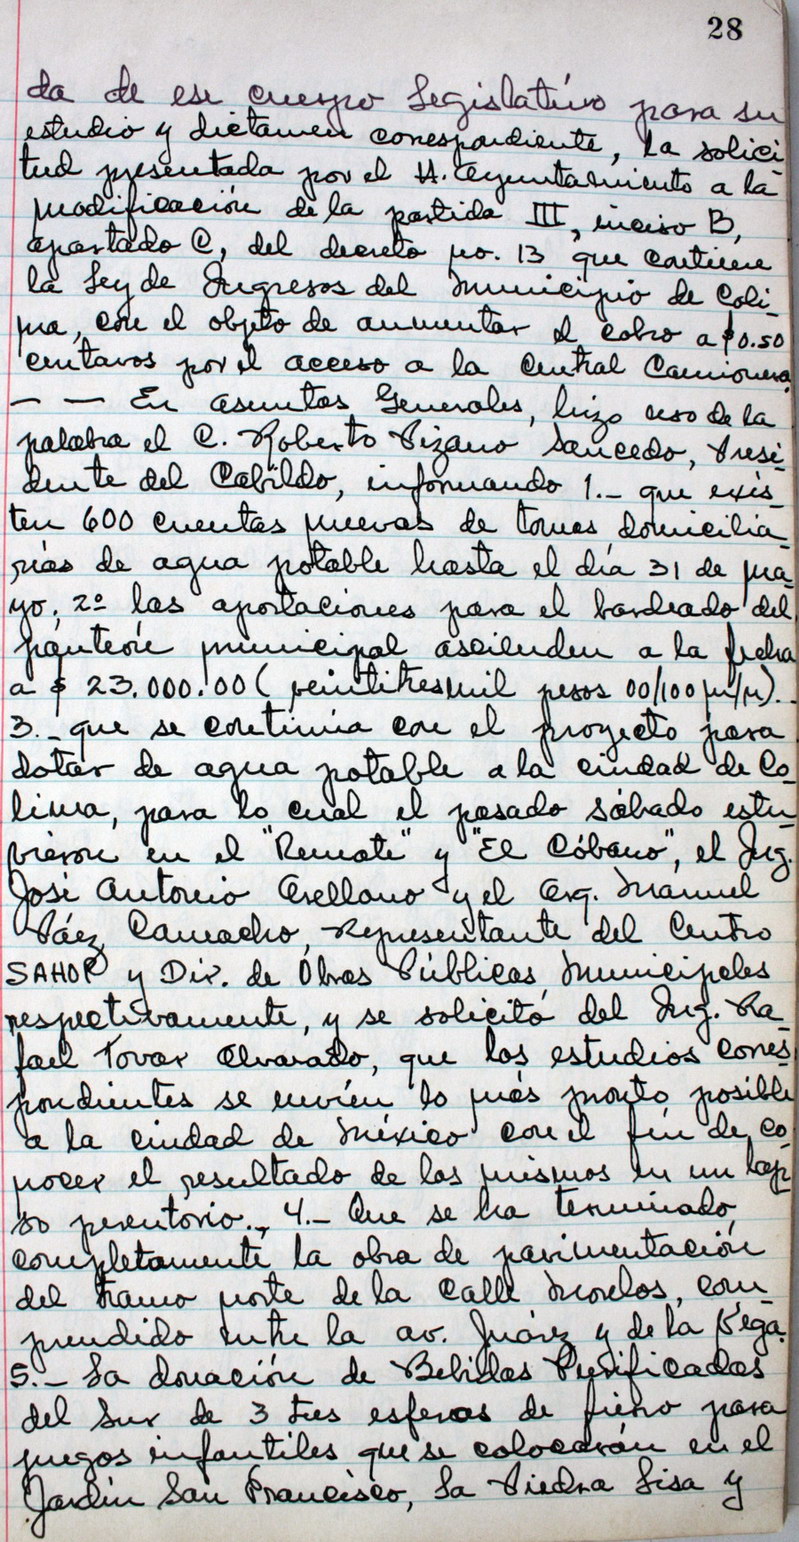 28
da de ese cuerpo Legislativo para su
estudio y dictamen correspondiente, la solici
tud presentada por el H. Ayuntamiento a la
modificación de la partida III, inciso B,
apartado C, del decreto no. 13 que contiene
la Ley de Ingresos del Municipio de Coli-
ma, con el objeto de aumentar el cobro a $0.50
centavos por el acceso a la Central Camionera.
— — En asuntos Generales, hizo uso de la
palabra el C. Roberto Pizano Saucedo, Presi-
dente del Cabildo, informando 1.- que exis-
ten 600 cuentas nuevas de tomas domicilia-
rias de agua potable hasta el día 31 de ma-
yo, 2º las aportaciones para el bardeado del
panteón municipal ascienden a la fecha
a $ 23.000.00 ( veintitresmil pesos 00/100 m/n).-
3.- que se continúa con el proyecto para
dotar de agua potable a la ciudad de Co-
lima, para lo cual el pasado sábado estu-
vieron en el "Remate" y "El Cóbano", el Ing.
José Antonio Arellano y el Arq. Manuel
Páez Camacho, Representante del Centro
SAHOP y Dir. de Obras Públicas Municipales
respectivamente, y se solicitó del Ing. Ra-
fael Tovar Alvarado, que los estudios corres-
pondientes se envíen lo más pronto posible
a la ciudad de México con el fin de co-
nocer el resultado de los mismos en un lap-
so perentorio., 4.- Que se ha terminado
completamente la obra de pavimentación
del tramo norte de la Calle Morelos, com-
prendido entre la av. Juárez y de la Vega.
5.- La donación de Bebidas Purificadas
del Sur de 3 tres esferas de fierro para
juegos infantiles que se colocarán en el
Jardín San Francisco, La Piedra Lisa y